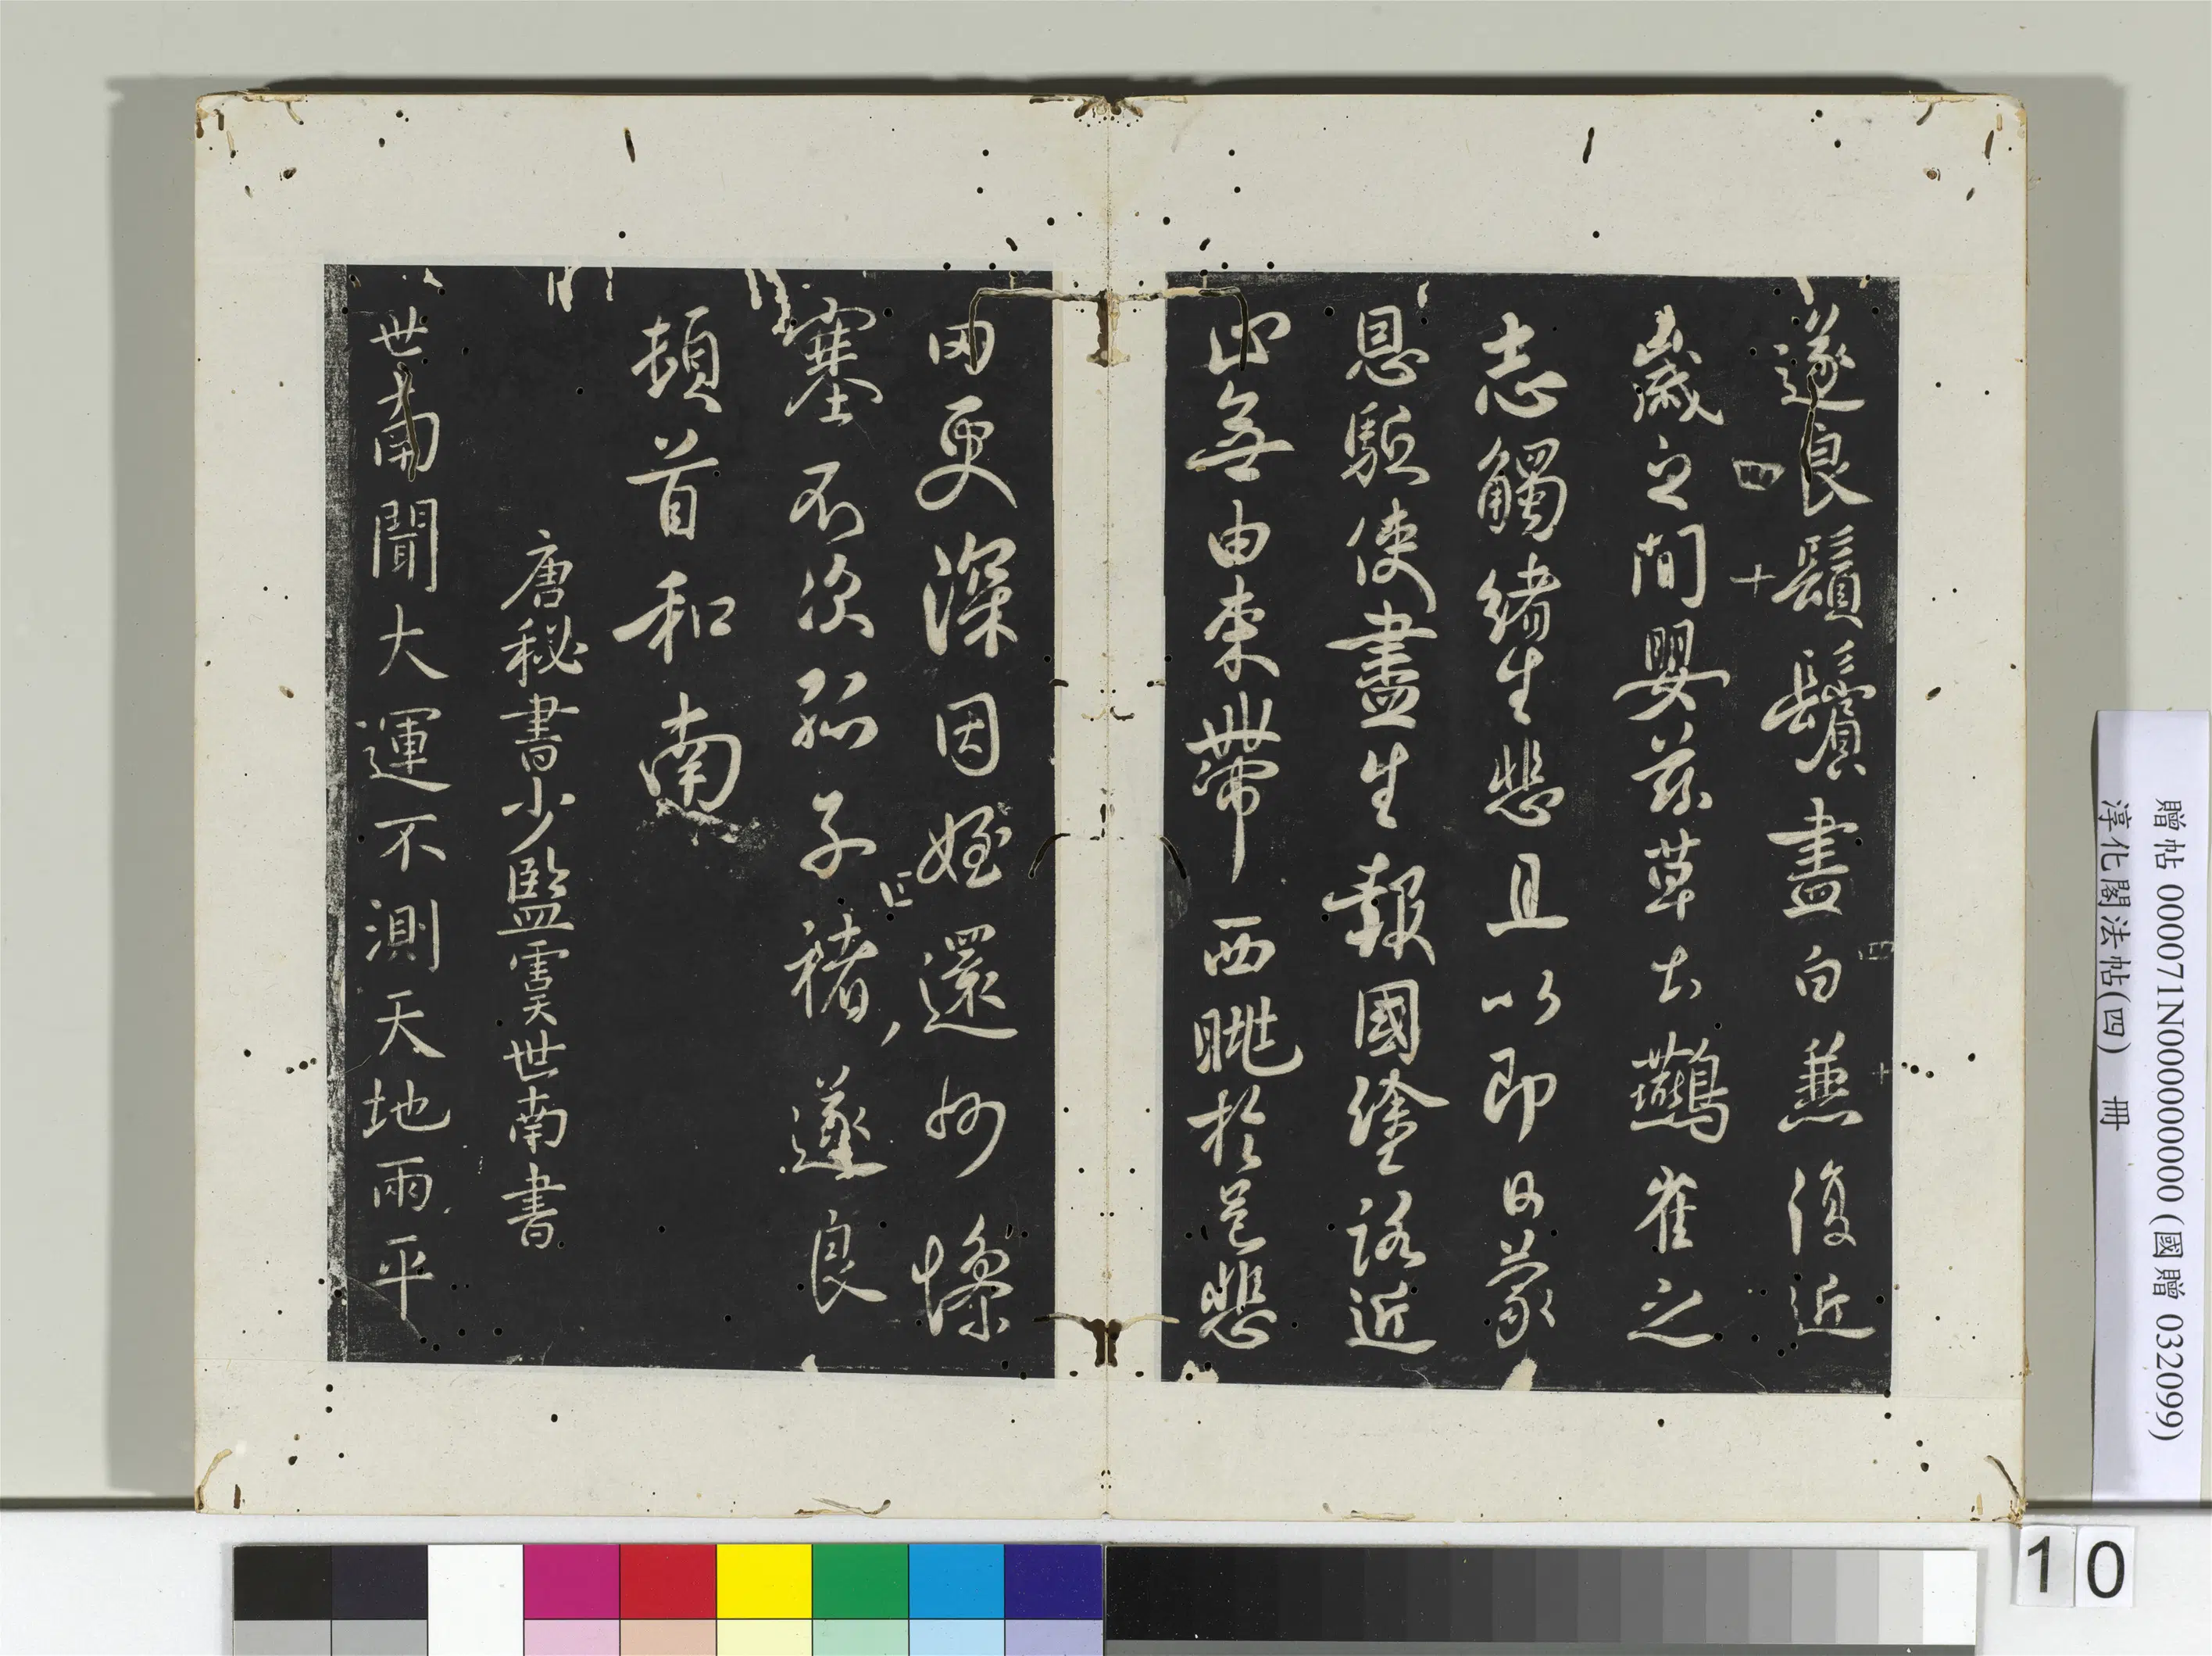 遂良鬚鬢盡白兼復近
四十
歲之間嬰茲草土鷰雀之
志觸緒生悲且以即日蒙
恩驅使盡生報國塗路近
止無由束帶西眺於邑悲
罔更深因姪還州慘
塞不次孤子褚遂良
頓首和南
唐秘書少監虞世南書
世南聞大運不測天地兩平
贈帖 000071N000000000 (國贈 032099)
淳化閣法帖(四) 冊
10